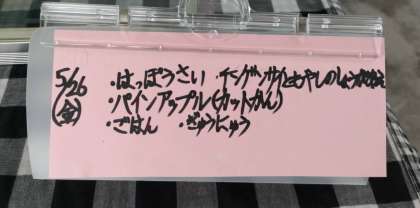 5/26 ・はっぽうさい ・チンゲンサイともやしのしょうがあえ
(金) ・パインアップル(カットかん)
・ごはん ・ぎゅうにゅう